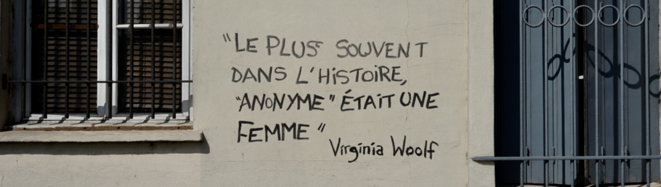 "LE PLUS SOUVENT
DANS L'HISTOIRE,
"ANONYME" ÉTAIT UNE
FEMME"
Virginia Woolf